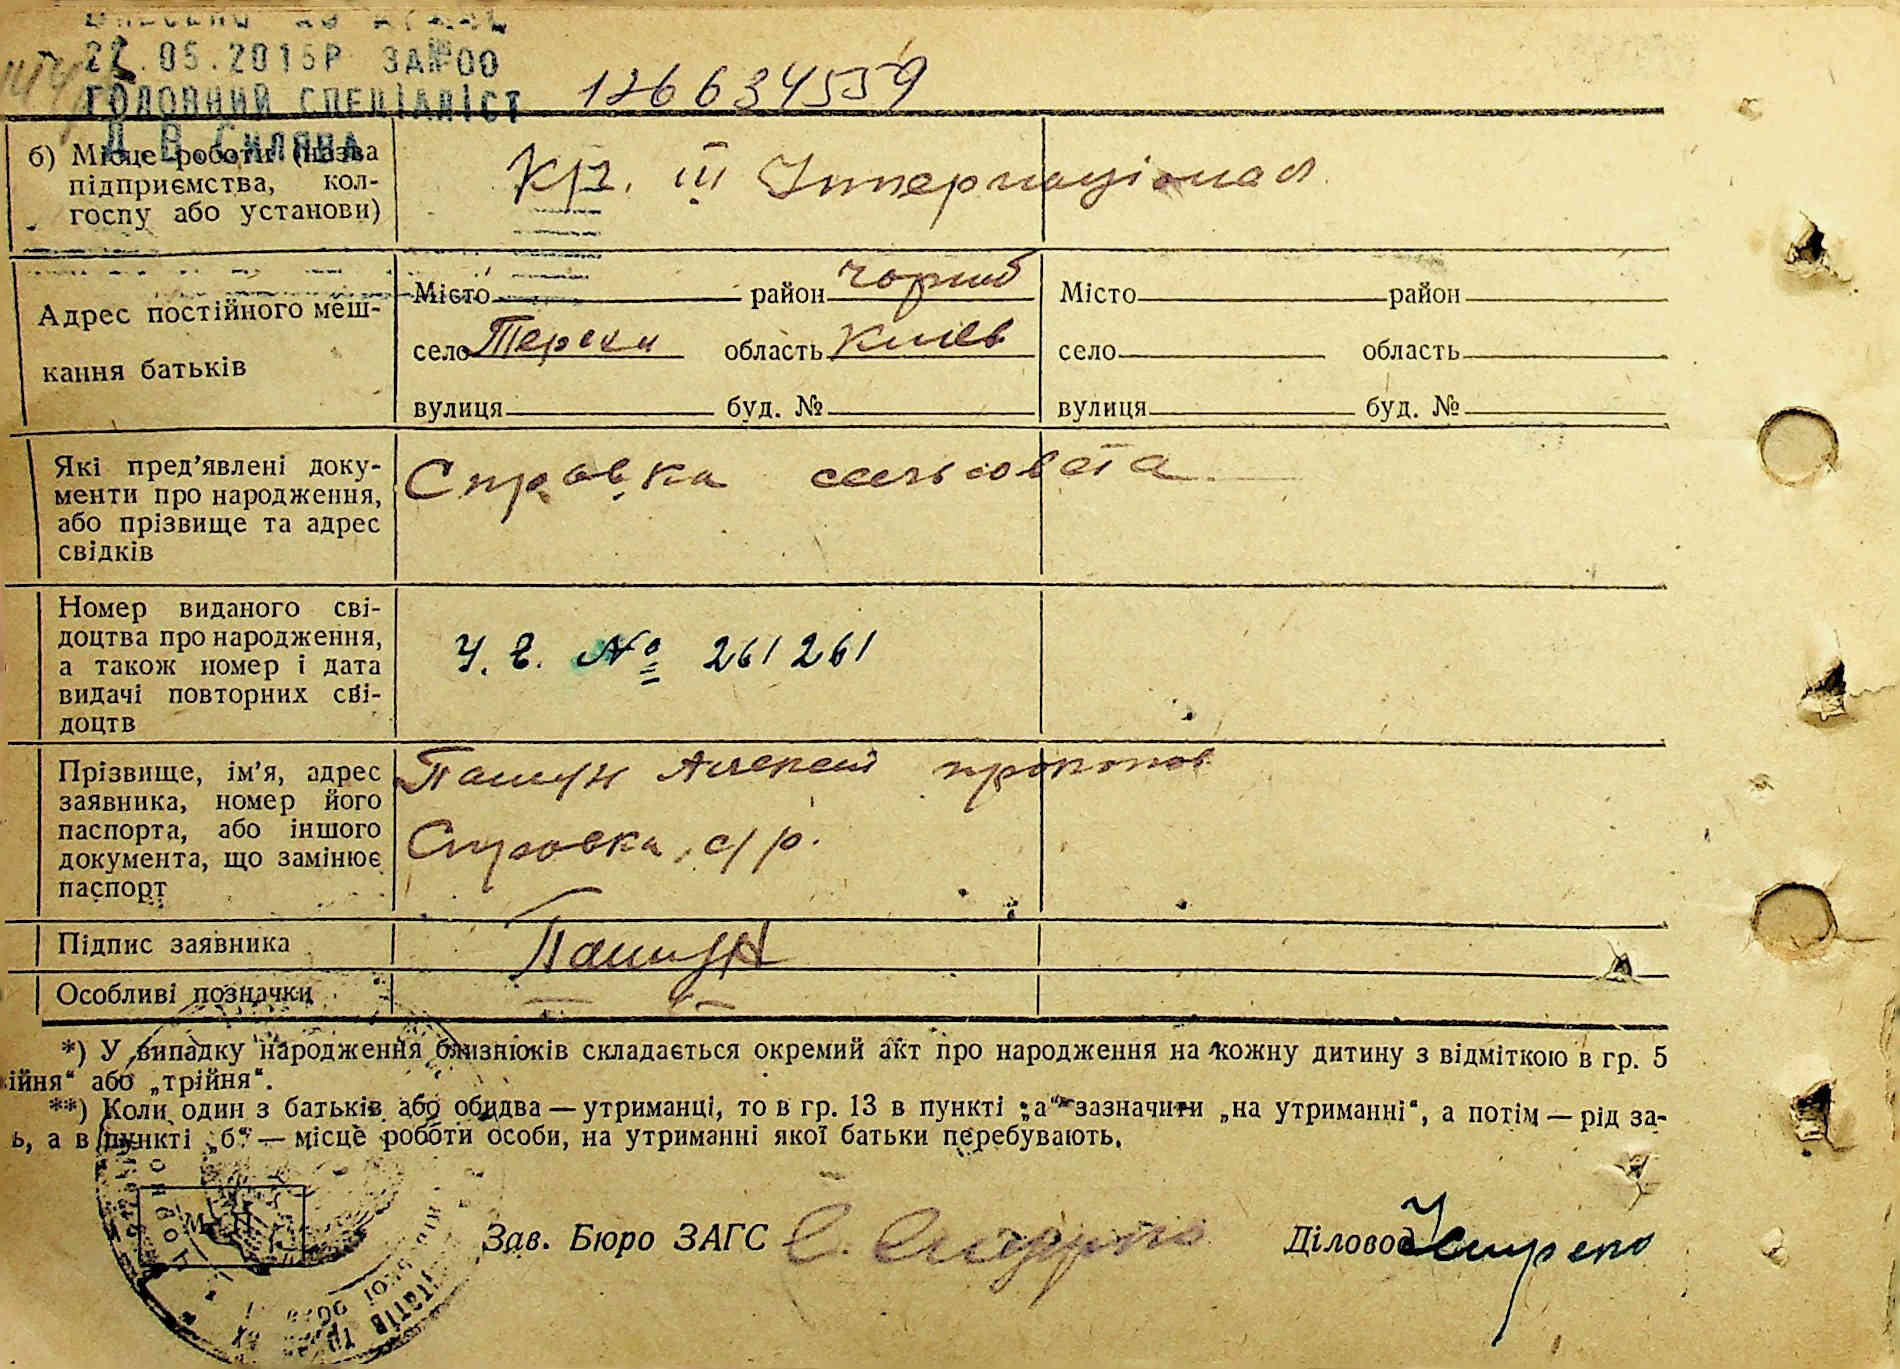 22.05.2015Р ЗА№00
126634559
ГОЛОВНИЙ СПЕЦІАЛІСТ
б) Місце роботи (назва
підприємства, кол-
госпу або установи)
ІІІ Інтернаціонал
Адрес постійного меш-
кання батьків
Місто район Чорноб Місто район
село область Киев село область
вулиця буд. № вулиця буд. №
Які пред'явлені доку-
менти про народження,
або прізвище та адрес
свідків
Справка сельсовета
Номер виданого сві-
доцтва про народження,
а також номер і дата
видачі повторних сві-
доцтв
№ 261261
Прізвище, ім'я, адрес
заявника, номер його
паспорта, або іншого
документа, що замінює
паспорт
Пашун Алексей прокопов
Справка с/р.
Підпис заявника
Пашун
Особливі позначки
*) У випадку народження близнюків складається окремий акт про народження на кожну дитину з відміткою в гр. 5
ійня“ або „трійня“.
**) Коли один з батьків або обидва — утриманці, то в гр. 13 в пункті „а“ зазначити „на утриманні“, а потім — рід за-
ь, а в пункті „б“ — місце роботи особи, на утриманні якої батьки перебувають.
М. П.
Зав. Бюро ЗАГС
Діловод